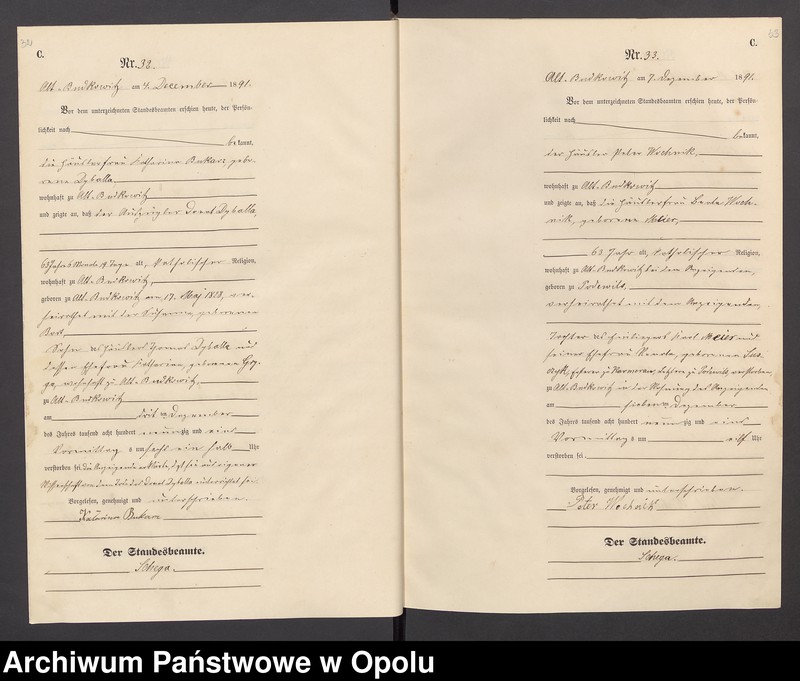 C.
Nr. 32.
Alt-Budkowitz am 4. December 1891.
Vor dem unterzeichneten Standesbeamten erschien heute, der Persön-
lichkeit nach
bekannt,
die Häuslerfrau Katharina Buklarz gebo-
rene Dyballa
wohnhaft zu Alt-Budkowitz
und zeigte an, daß der Auszügler Dyballa,
63 Jahre 6 Monate 19 Tage alt, katholischer Religion,
wohnhaft zu Alt-Budkowitz,
geboren zu Alt-Budkowitz am 17. Maj 1828, ver-
heirathet mit der Susanna, geborenen
Sohn des Häuslers Thomas Dyballa und
dessen Ehefrau Katharina, geborenen
wohnhaft zu Alt-Budkowitz,
zu Alt-Budkowitz
am drei ten Dezember
des Jahres tausend acht hundert neunzig und eins
Vormittag s um halb Uhr
verstorben sei. Die Anzeigende erklärte, daß sie aus eigener
Wissenschaft von dem Tode des Dyballa unterrichtet sei.
Vorgelesen, genehmigt und unterschrieben.
Katarina
Der Standesbeamte.
Schega.
33
C.
Nr. 33.
Alt-Budkowitz am 7. Dezember 1891.
Vor dem unterzeichneten Standesbeamten erschien heute, der Persön-
lichkeit nach
bekannt,
der Häusler Peter Wochnik,
wohnhaft zu Alt-Budkowitz
und zeigte an, daß die Häuslerfrau Woch-
nik, geborene Meier,
63 Jahr alt, katholischer Religion,
wohnhaft zu Alt-Budkowitz bei dem Anzeigenden,
geboren zu Podewils,
verheirathet mit dem Anzeigenden,
Tochter des Einliegers Karl Meier und
seiner Ehefrau geborenen
zu letztere zu verstorben,
zu Alt-Budkowitz in der Wohnung des Anzeigenden
am sieben ten Dezember
des Jahres tausend acht hundert neunzig und eins
Vormittag s um elf Uhr
verstorben sei.
Vorgelesen, genehmigt und unterschrieben.
Peter Wochnik
Der Standesbeamte.
Schega.
Archiwum Państwowe w Opolu